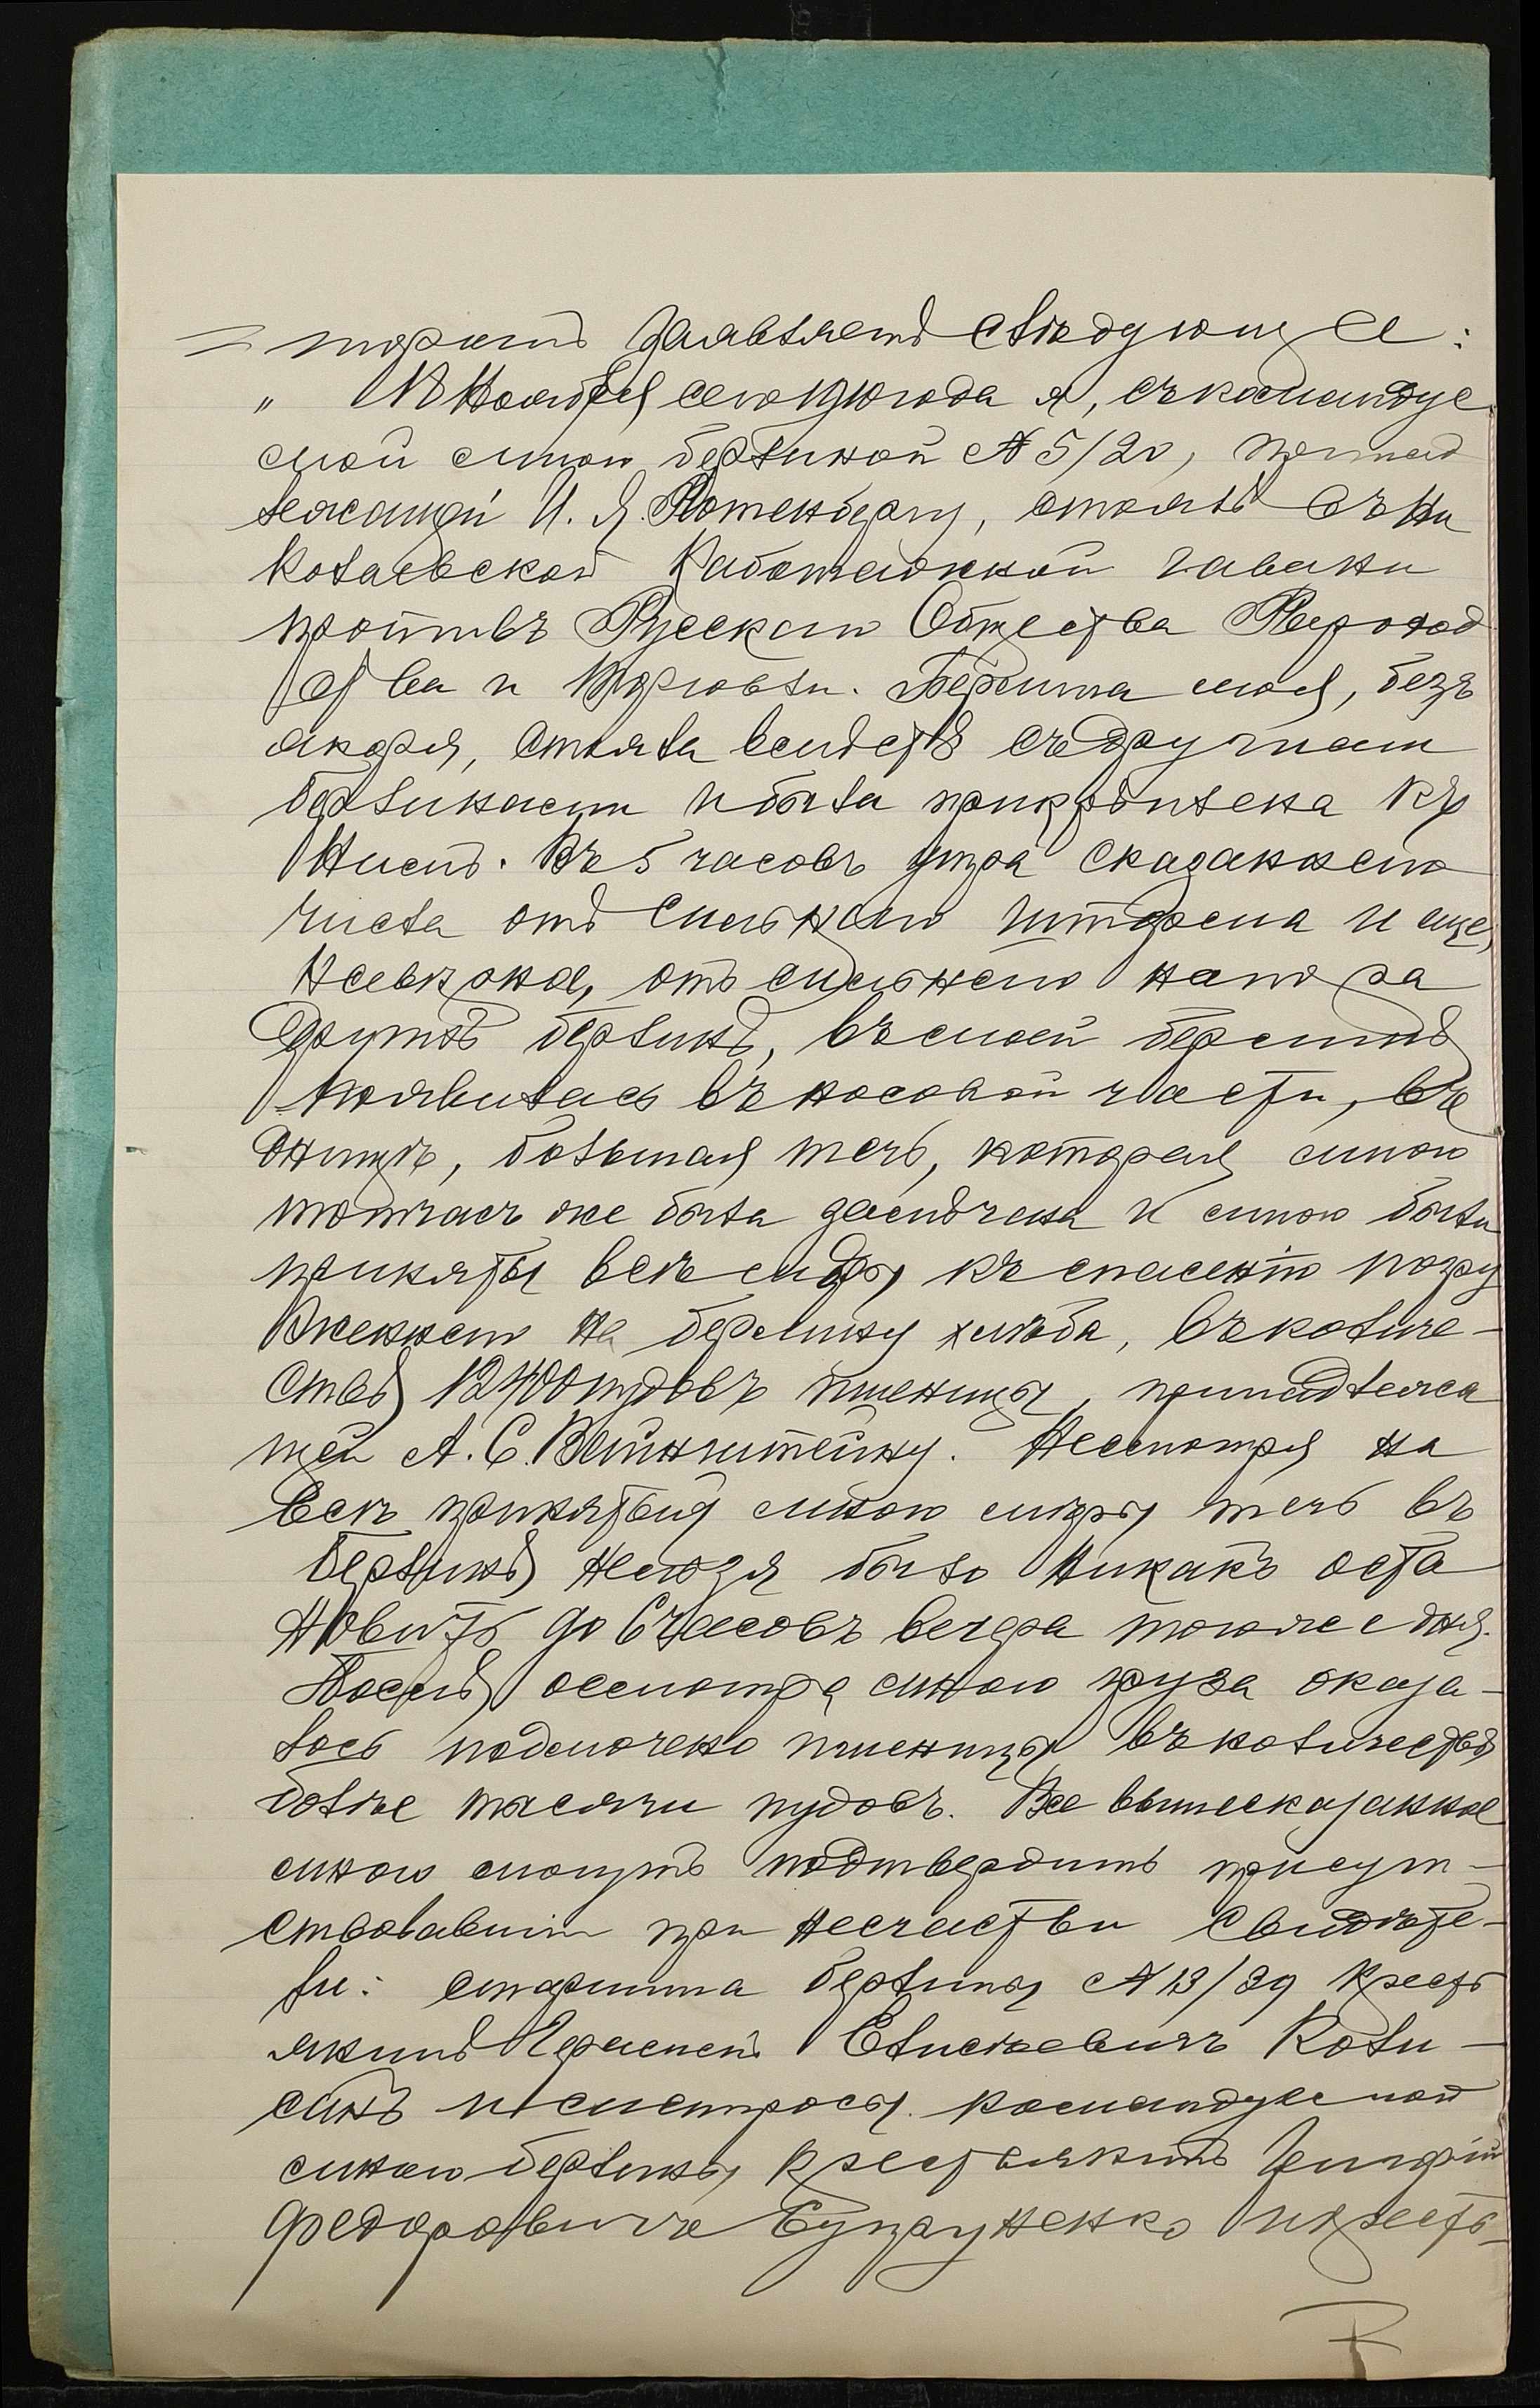 торомъ заявляетъ слѣдующее:
" Ноября сего года я, съ командуе
мой мною берлиной № 5/20, принад
лежащей И. Я. Ротенбергу, стоялъ въ Ни
колаевской Каботажной гавани
противъ Русскаго Общества Пароход
ства и Торговли. Берлина моя, безъ
якоря, стояла вмѣстѣ съ другими
берлинами и была прикрѣплена къ
нимъ. Въ 5 часовъ утра сказаннаго
числа отъ сильнаго шторма и еще,
навѣрное, отъ сильнаго напора
другихъ берлинъ, въ моей берлинѣ
появилась въ носовой части, въ
днищѣ, большая течь, которая мною
тотчасъ же была замѣчена и мною были
приняты всѣ мѣры къ спасенію погру
женнаго на берлину хлѣба, въ количе-
ствѣ 12400 пудовъ пшеницы, принадлежа
щей А. С. Вайнштейну. Несмотря на
всѣ принятыя мною мѣры течь въ
берлинѣ нельзя было никакъ оста
новить до 6 часовъ вечера того же дня.
Послѣ осмотра мною груза оказа-
лось подмочено пшеницы въ количествѣ
болѣе тысячи пудовъ. Все вышесказанное
мною могутъ подтвердить присут-
ствовавшіе при несчастьи свидѣте-
ли: старшина берлины № 13/39 кресть
янинъ Герасимъ Елисѣевичъ Коли-
синъ и матросы командуемой
мною берлины крестьянинъ
Федоровичъ Супруненко и кресть-